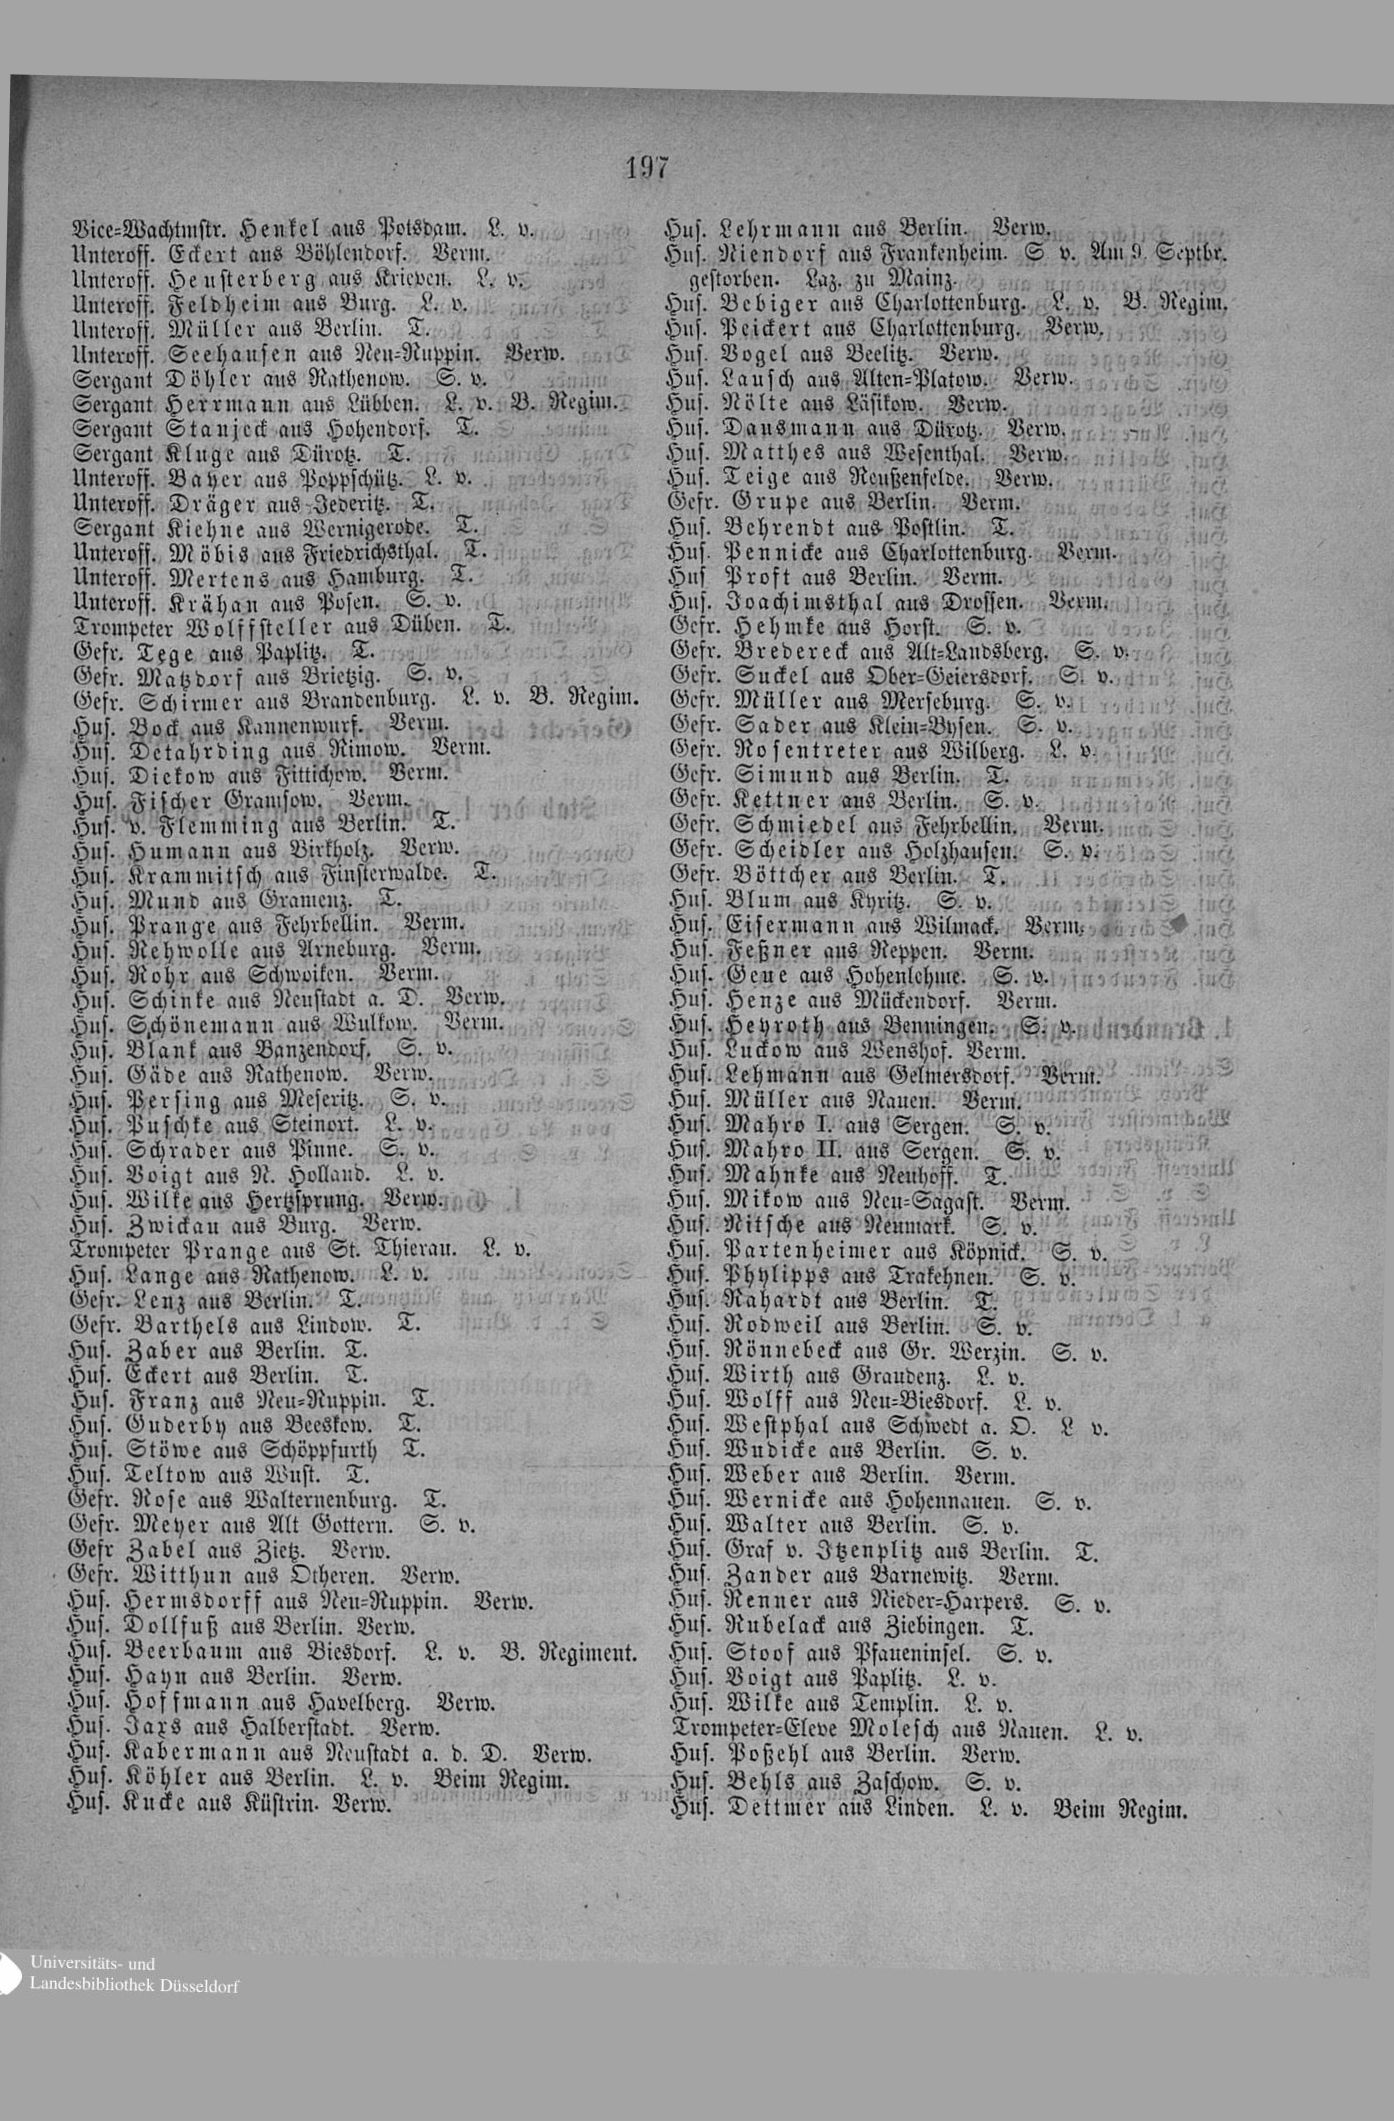 197
Vice=Wachtmstr. Henkel aus Potsdam. L. v.
Unteroff. Eckert aus Böhlendorf. Verm.
Unteroff. Heusterberg aus Krieven. L. v.
Unteroff. Feldheim aus Burg. L. v.
Unteroff. Müller aus Berlin. T.
Unteroff. Seehausen aus Neu=Ruppin. Verw.
Sergant Döhler aus Rathenow. S. v.
Sergant Herrmann aus Lübben. L. v. B. Regim.
Sergant Stanjeck aus Hohendorf. T.
Sergant Kluge aus Dürotz. T.
Unteroff. Bayer aus Poppschütz. L. v.
Unteroff. Dräger aus Jederitz. T.
Sergant Kiehne aus Wernigerode. T.
Unteroff. Möbis aus Friedrichsthal. T.
Unteroff. Mertens aus Hamburg. T.
Unteroff. Krähan aus Posen. S. v.
Trompeter Wolffsteller aus Düben. T.
Gefr. Tege aus Paplitz. T.
Gefr. Matzdorf aus Brietzig. S. v.
Gefr. Schirmer aus Brandenburg. L. v. B. Regim.
Hus. Bock aus Kannenwurf. Verm.
Hus. Detahrding aus Rimow. Verm.
Hus. Dickow aus Fittichow. Verm.
Hus. Fischer Gramsow. Verm.
Hus. v. Flemming aus Berlin. T.
Hus. Humann aus Birkholz. Verw.
Hus. Krammitsch aus Finsterwalde. T.
Hus. Mund aus Gramenz. T.
Hus. Prange aus Fehrbellin. Verm.
Hus. Rehwolle aus Arneburg. Verm.
Hus. Rohr aus Schwoiken. Verm.
Hus. Schinke aus Neustadt a. D. Verw.
Hus. Schönemann aus Wulkow. Verm.
Hus. Blank aus Banzendorf. S. v.
Hus. Gäde aus Rathenow. Verw.
Hus. Persing aus Meseritz. S. v.
Hus. Puschke aus Steinort. L. v.
Hus. Schrader aus Pinne. S. v.
Hus. Voigt aus N. Holland. L. v.
Hus. Wilke aus Hertzsprung. Verw.
Hus. Zwickau aus Burg. Verw.
Trompeter Prange aus St. Thierau. L. v.
Hus. Lange aus Rathenow. L. v.
Gefr. Lenz aus Berlin. T.
Gefr. Barthels aus Lindow. T.
Hus. Zaber aus Berlin. T.
Hus. Eckert aus Berlin. T.
Hus. Franz aus Neu=Ruppin. T.
Hus. Guderby aus Beeskow. T.
Hus. Stöwe aus Schöppfurth T.
Hus. Teltow aus Wust. T.
Gefr. Rose aus Walternenburg. T.
Gefr. Meyer aus Alt Gottern. S. v.
Gefr Zabel aus Zietz. Verw.
Gefr. Witthun aus Otheren. Verw.
Hus. Hermsdorff aus Neu=Ruppin. Verw.
Hus. Dollfuß aus Berlin. Verw.
Hus. Beerbaum aus Biesdorf. L. v. B. Regiment.
Hus. Hayn aus Berlin. Verw.
Hus. Hoffmann aus Havelberg. Verw.
Hus. Jaxs aus Halberstadt. Verw.
Hus. Kabermann aus Neustadt a. d. D. Verw.
Hus. Köhler aus Berlin. L. v. Beim Regim.
Hus. Kucke aus Küstrin. Verw.
Hus. Lehrmann aus Berlin. Verw.
Hus. Niendorf aus Frankenheim. S v. Am 9. Septbr.
gestorben. Laz. zu Mainz.
Hus. Bebiger aus Charlottenburg. L. v. B. Regim.
Hus. Peickert aus Charlottenburg. Verw.
Hus. Vogel aus Beelitz. Verw.
Hus. Lausch aus Alten=Platow. Verw.
Hus. Nölte aus Läsikow. Verw.
Hus. Dausmann aus Dürotz. Verw.
Hus. Matthes aus Wesenthal. Verw.
Hus. Teige aus Reußenfelde. Verw.
Gefr. Grupe aus Berlin. Verm.
Hus. Behrendt aus Postlin. T.
Hus. Pennicke aus Charlottenburg. Verm.
Hus Proft aus Berlin. Verm.
Hus. Joachimsthal aus Drossen. Verm.
Gefr. Hehmke aus Horst. S. v.
Gefr. Bredereck aus Alt=Landsberg. S. v.
Gefr. Suckel aus Ober=Geiersdorf. S. v.
Gefr. Müller aus Merseburg. S. v.
Gefr. Sader aus Klein=Bysen. S. v.
Gefr. Rosentreter aus Wilberg. L. v.
Gefr. Simund aus Berlin. T.
Gefr. Kettner aus Berlin. S. v.
Gefr. Schmiedel aus Fehrbellin. Verm.
Gefr. Scheidler aus Holzhausen. S. v.
Gefr. Böttcher aus Berlin. T.
Hus. Blum aus Kyritz. S. v.
Hus. Eisermann aus Wilmack. Verm.
Hus. Feßner aus Reppen. Verm.
Hus. Geue aus Hohenlehme. S. v.
Hus. Henze aus Mückendorf. Verm.
Hus. Heyroth aus Benningen. S. v.
Hus. Luckow aus Wenshof. Verm.
Hus. Lehmann aus Gelmersdorf. Verm.
Hus. Müller aus Nauen. Verm.
Hus. Mahro I. aus Sergen. S. v.
Hus. Mahro II. aus Sergen. S. v.
Hus. Mahnke aus Neuhoff. T.
Hus. Mikow aus Neu=Sagast. Verm.
Hus. Nitsche aus Neumark. S. v.
Hus. Partenheimer aus Köpnick. S. v.
Hus. Phylipps aus Trakehnen. S. v.
Hus. Rahardt aus Berlin. T.
Hus. Rodweil aus Berlin. S. v.
Hus. Rönnebeck aus Gr. Werzin. S. v.
Hus. Wirth aus Graudenz. L. v.
Hus. Wolff aus Neu=Biesdorf. L. v.
Hus. Westphal aus Schwedt a. O. L v.
Hus. Wudicke aus Berlin. S. v.
Hus. Weber aus Berlin. Verm.
Hus. Wernicke aus Hohennauen. S. v.
Hus. Walter aus Berlin. S. v.
Hus. Graf v. Itzenplitz aus Berlin. T.
Hus. Zander aus Barnewitz. Verm.
Hus. Renner aus Nieder=Harpers. S. v.
Hus. Rubelack aus Ziebingen. T.
Hus. Stoof aus Pfaueninsel. S. v.
Hus. Voigt aus Paplitz. L. v.
Hus. Wilke aus Templin. L. v.
Trompeter=Eleve Molesch aus Nauen. L. v.
Hus. Poßehl aus Berlin. Verw.
Hus. Behls aus Zaschow. S. v.
Hus. Dettmer aus Linden. L. v. Beim Regim.
Universitäts- und
Landesbibliothek Düsseldorf